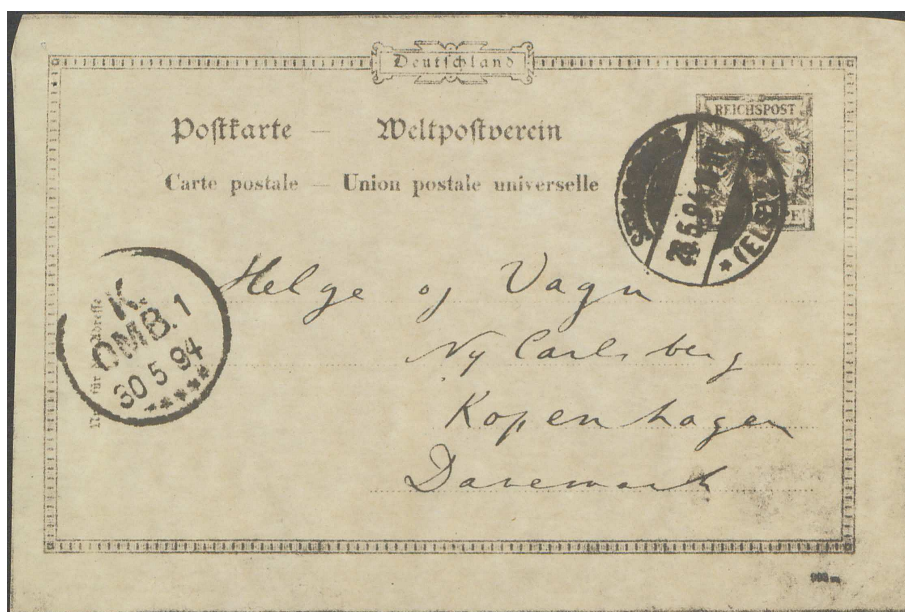 Deutschland
Postkarte — Weltpostverein
Carte postale — Union postale universelle
REICHSPOST
28.5.94
(ELSASS)
Helge og Vagn
Ny Carlsberg
Kopenhagen
Danemark
K.
OMB. 1
30 5 94
für Adresse